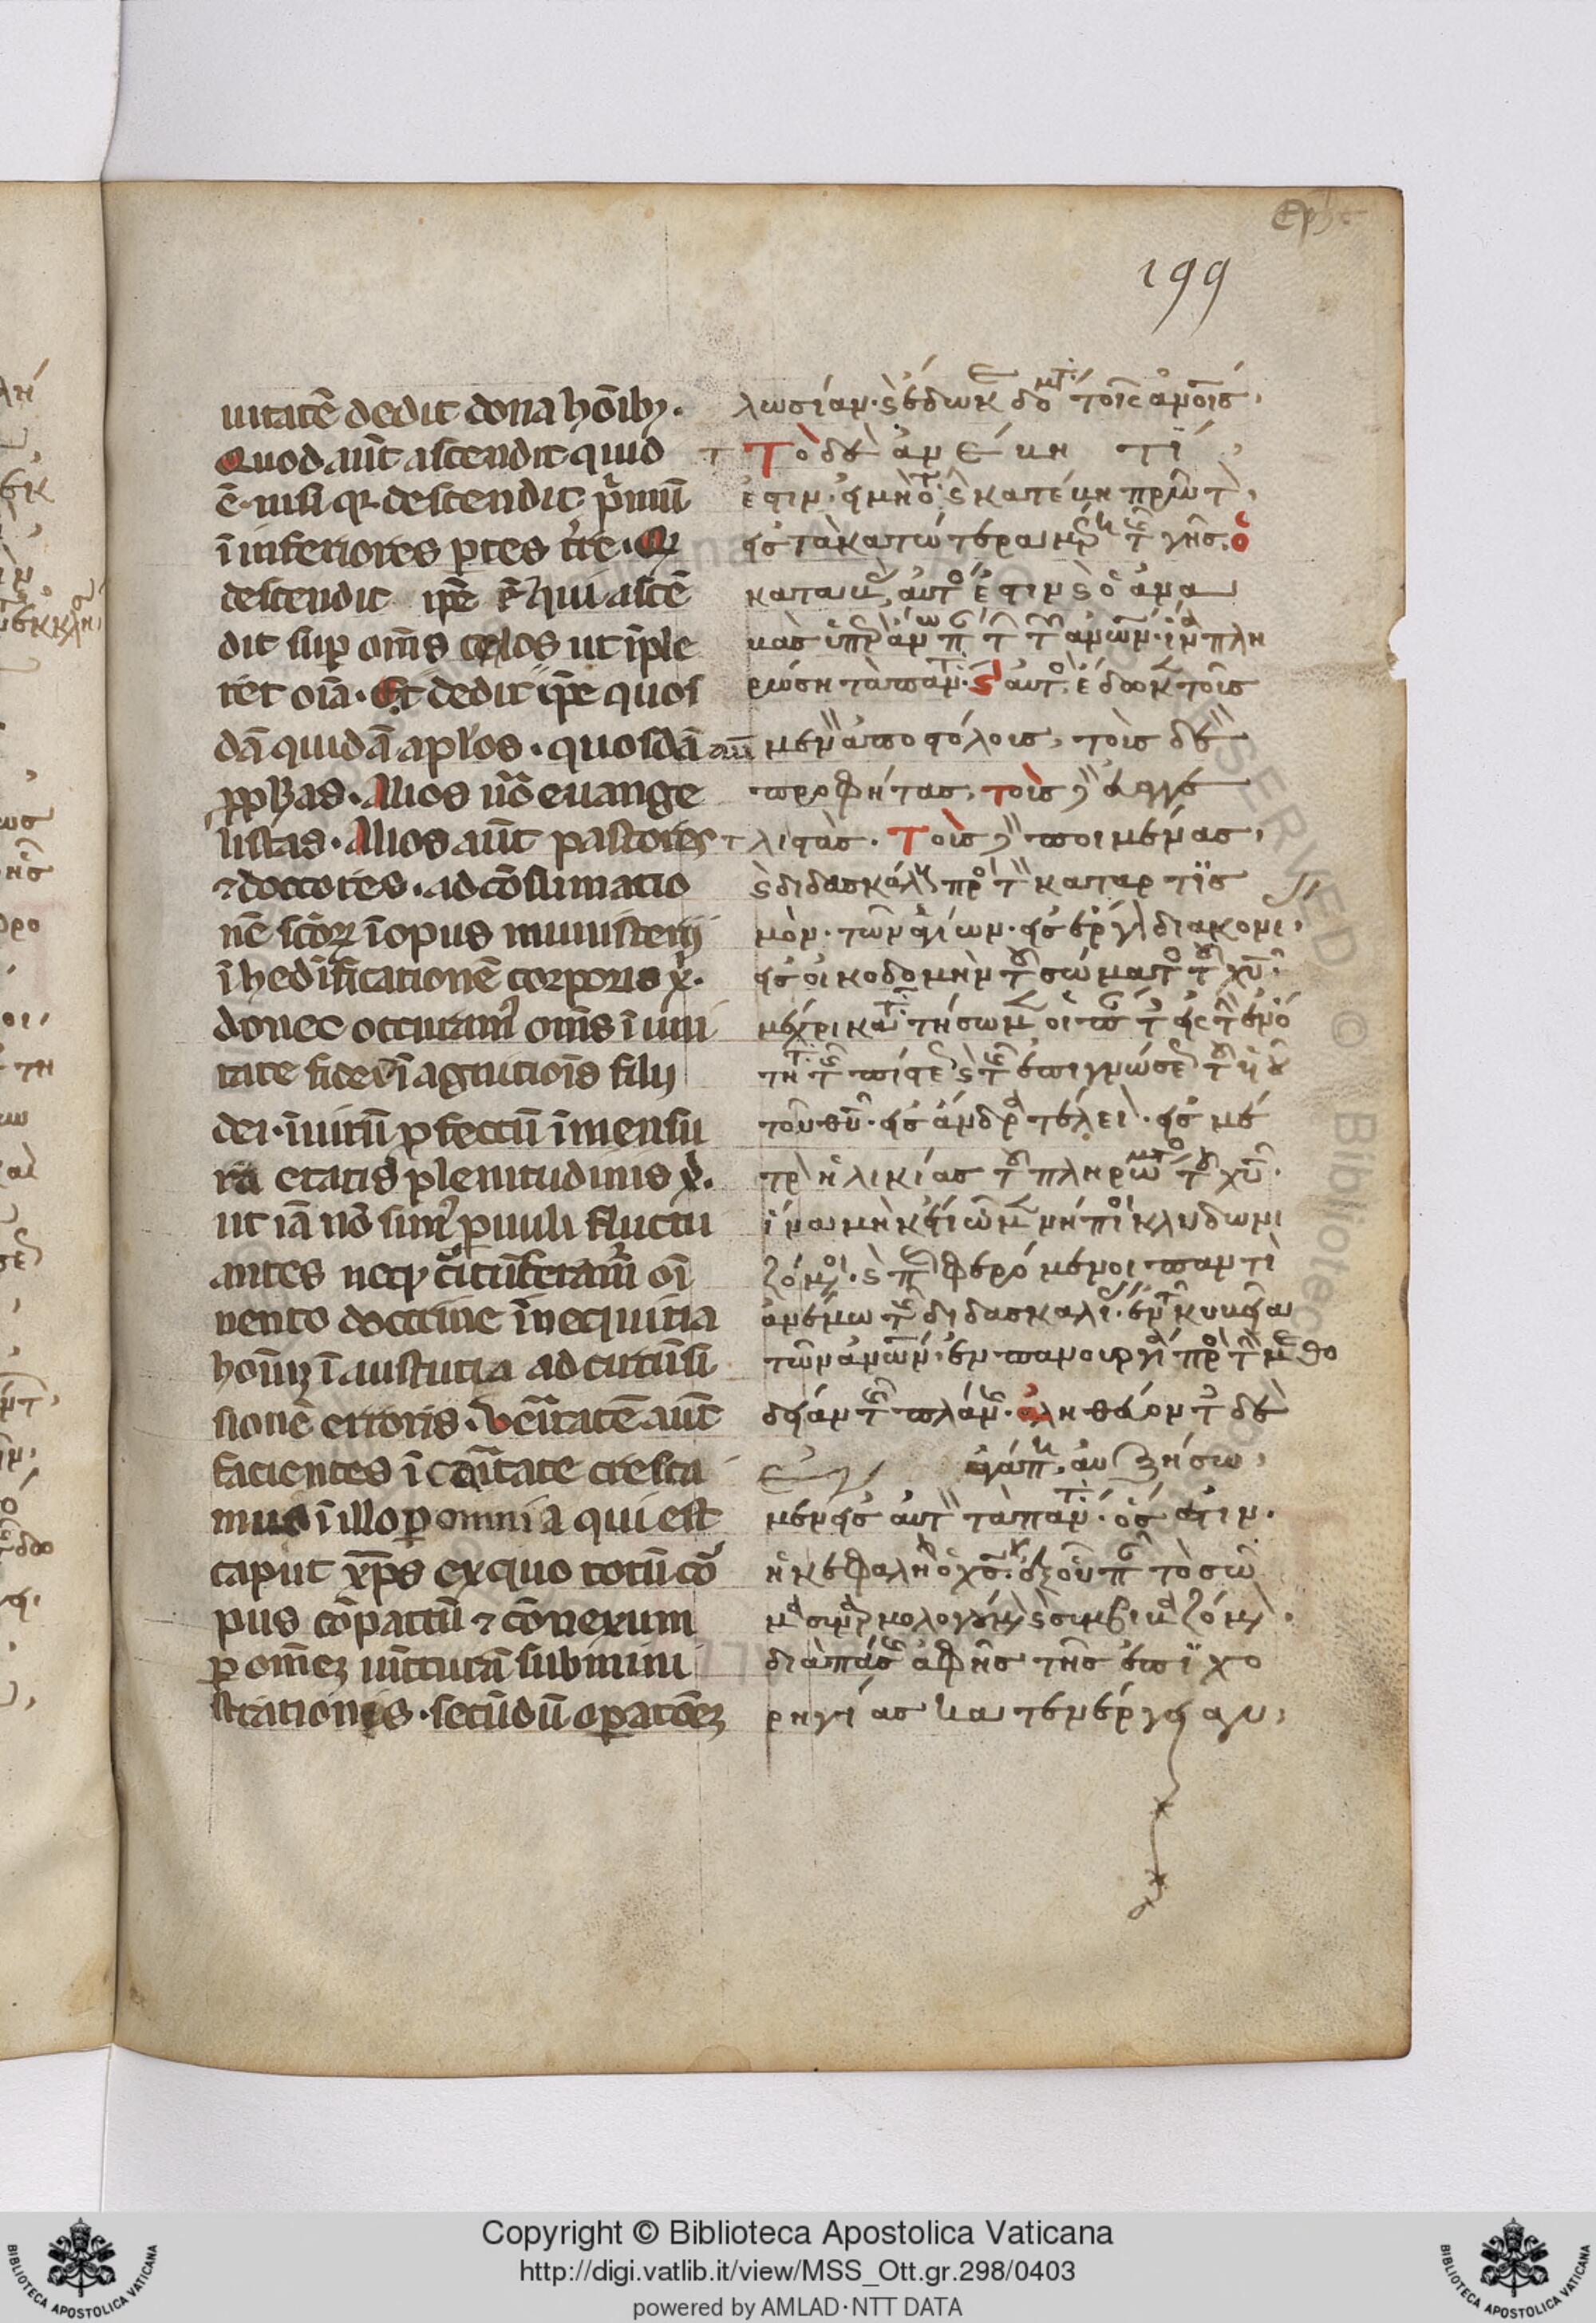 Ephe
199
uitatē dedit dona hōib⁊.
Quod aūt ascendit quid
ē nisi q̄ descendit p̄mū
ī inferiores ptes tr̄e. Q̄
descendit ip̄e ē ⁊ qui ascē
dit sup om̄s celos ut īple
ret oīa. Et dedit ip̄e quos
dā quidā ap̄los. quosdā aū
pphas. Alios ūo euange
listas. Alios aūt pastores
⁊ doctores. ad cōsumatio
nē sc̄oꝝ ī opus ministerij
ī hedificationē corporis x̄.
donec occuram᾽ om̄s ī uni
tate fidei ī agnitiōis filij
dei. ī uirū pfectū ī mensu
ra etatis plenitudinis x̄.
ut iā nō sim᾽ puuli fluctu
antes neq⁊ circūferam᾽ oī
uento doctrine ī nequitia
hoīuꝫ ī austutia ad circūsi
sionē erroris. Veritatē aūt
facientes ī caritate cresca
mus ī illo p omnia qui est
caput xp̄s ex quo totū cor
pus cōpactū ⁊ cōnexum
p om̄eꝫ iūcturā submini
strationis. secūdū opatiōeꝫ
λωσίαν. ϛ ἐδωκε δόματα τοῖς ἀνοῖς,
Τὸ δὲ ἀνέβη τί
ἐστιν. εἰ μὴ ὅτι ϛ κατέβη πρῶτ,
εἰς τὰ κατώτερα μέρη τῆς γῆς. ὁ
καταβὰς, αὐτός ἐστιν ϛ ὁ ἀνα
βὰς ὑπεράνω πάντων τῶν ἀνῶν. ἵνα πλη
ρώση τὰ πάντα. ϛ αὐτὸς ἔδωκε τοῖς
μὲν ἀποστόλοις, τοῖς δὲ
προφήτας, τοῖς δὲ εὐαγγε
λιστάς. Τοῖς δὲ ποιμένας,
ϛ διδασκάλους πρὸς τὸν καταρτισ
μὸν. τῶν ἁγίων. εἰς ἔργον διακονί,
εἰς οἰκοδομὴν τοῦ σώματος τοῦ χῦ.
μέχρι καταντήσωμεν οἱ πάντες εἰς τὴν ἑνό
τητα τῆς πίστεως ϛ τῆς ἐπιγνώσεως τοῦ υἱοῦ
τοῦ θῦ. εἰς ἄνδρα τέλει. εἰς μέ
τρ ἡλικίας τοῦ πληρώματος τοῦ χῦ.
ἵνα μηκέτι ὦμεν νήπιοι κλυδωνι
ζόμενοι. ϛ περιφερόμενοι παντὶ
ἀνέμω τῆς διδασκαλί. ἐν τῆ κυβεία
τῶν ἀνῶν. ἐν πανουργία πρὸς τὴν μεθο
δείαν τῆς πλάνης. ἀληθεύοντες δὲ
ἐν ἀγάπη, αὐξήσω,
μεν εἰς αὐτὸν τὰ πάντα. ὅς ἐστιν.
ἡ κεφαλὴ ὁ χς. ἐξ οὗ πᾶν τὸ σῶ
μα συναρμολογούμενον ϛ συμβιβαζόμενον.
διὰ πάσης ἀφῆς τῆς ἐπιχο
ρηγίας κατ ἐνέργειαν,
Copyright © Biblioteca Apostolica Vaticana
http://digi.vatlib.it/view/MSS_Ott.gr.298/0403
powered by AMLAD·NTT DATA
BIBLIOTECA APOSTOLICA VATICANA
BIBLIOTECA APOSTOLICA VATICANA